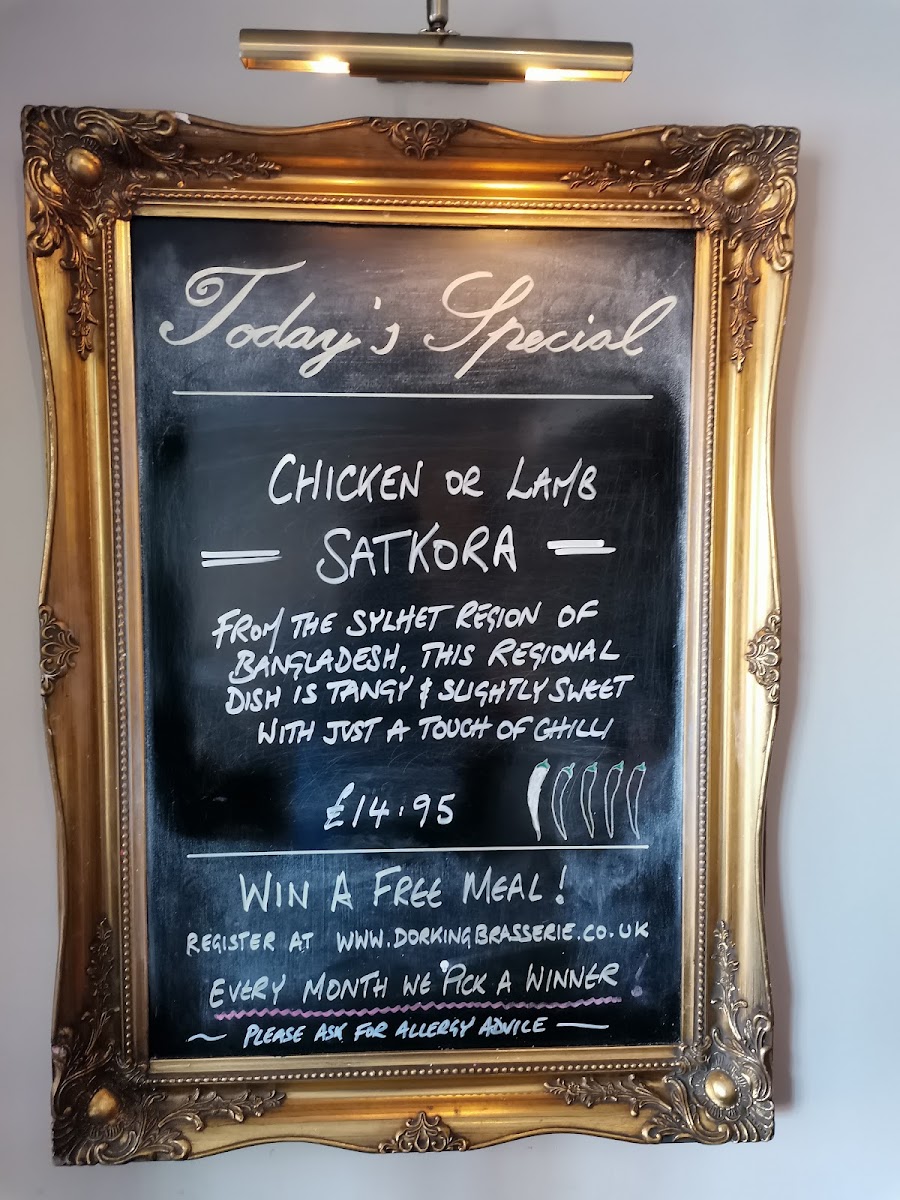 Today's Special
CHICKEN OR LAMB
SATKORA
FROM THE SYLHET REGION OF
BANGLADESH, THIS REGIONAL
DISH IS TANGY & SLIGHTLY SWEET
WITH JUST A TOUCH OF CHILLI
£14.95
WIN A FREE MEAL!
REGISTER AT WWW.DORKINGBRASSERIE.CO.UK
EVERY MONTH WE PICK A WINNER!
~ PLEASE ASK FOR ALLERGY ADVICE ~